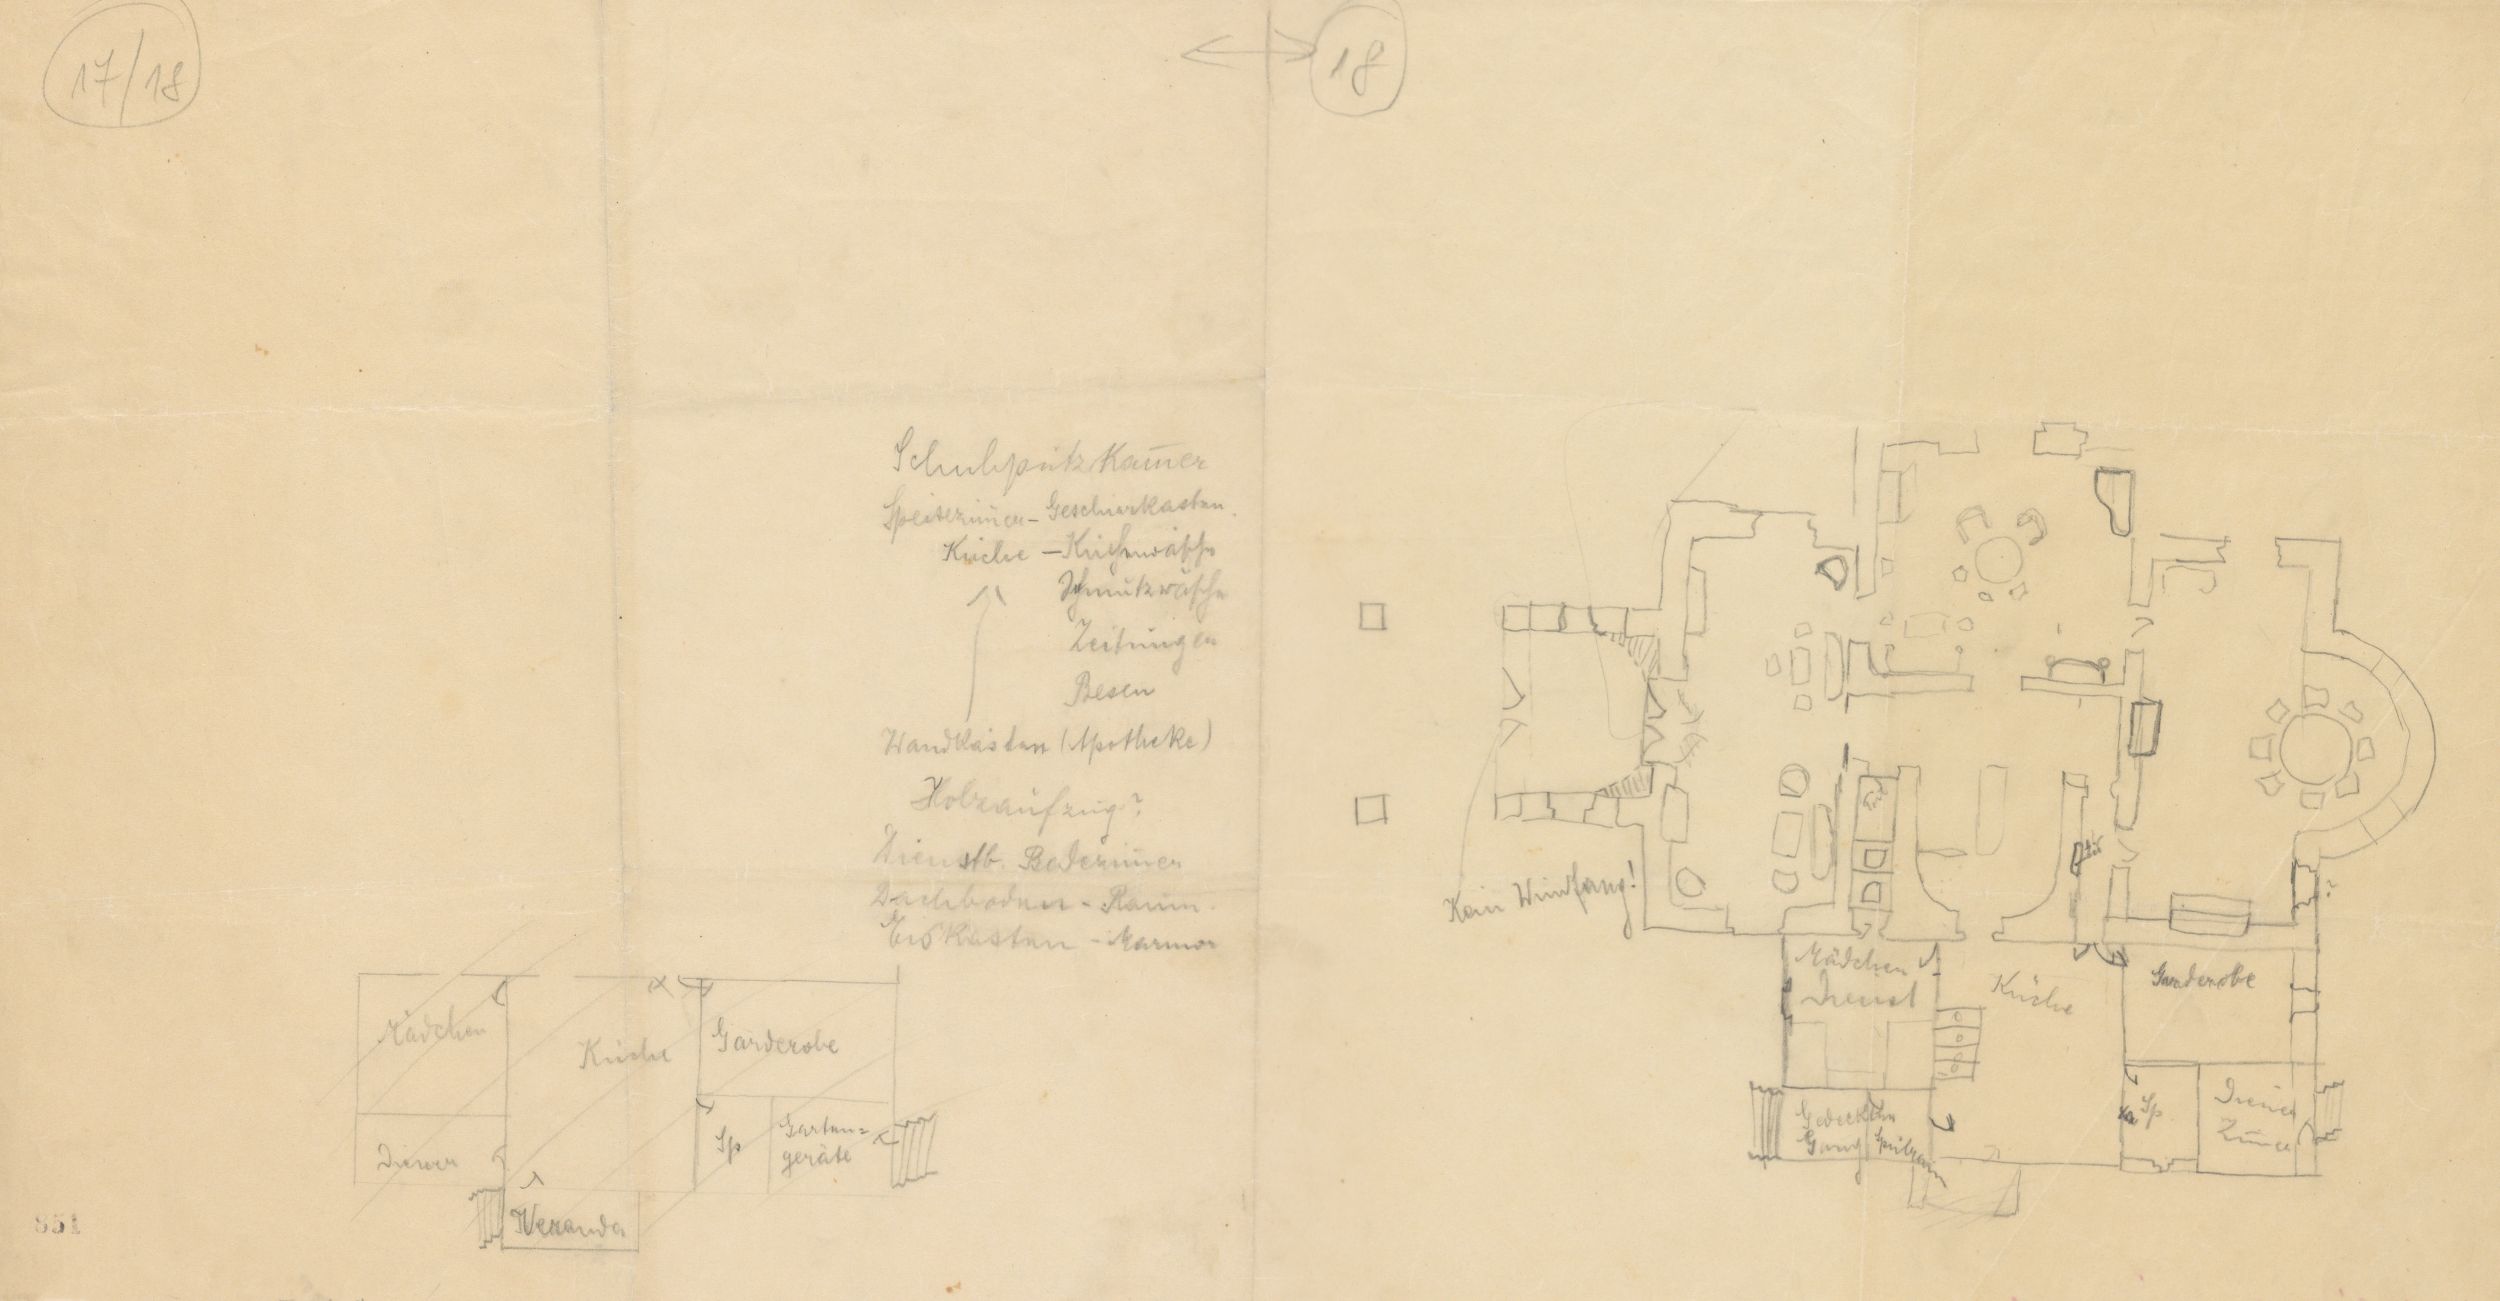 17/18
18
Schuhputz Kam̅er
Speisezim̅er - Geschirrkasten.
Küche - Küchenwäsche
Schmutzwäsche
Zeitungen
Besen
Wandkasten (Apotheke)
Holzaufzug?
Dienstb. Badezim̅er
Dachboden - Raum.
Eiskasten - Marmor
Kein Windfang!
Mädchen
Küche
Garderobe
Diener
Sp
Garten=
geräte
Veranda
Mädchen
Dienst
Küche
Garderobe
Gedeckter
Gang
Sp
Diener
Zim̅er
?
851